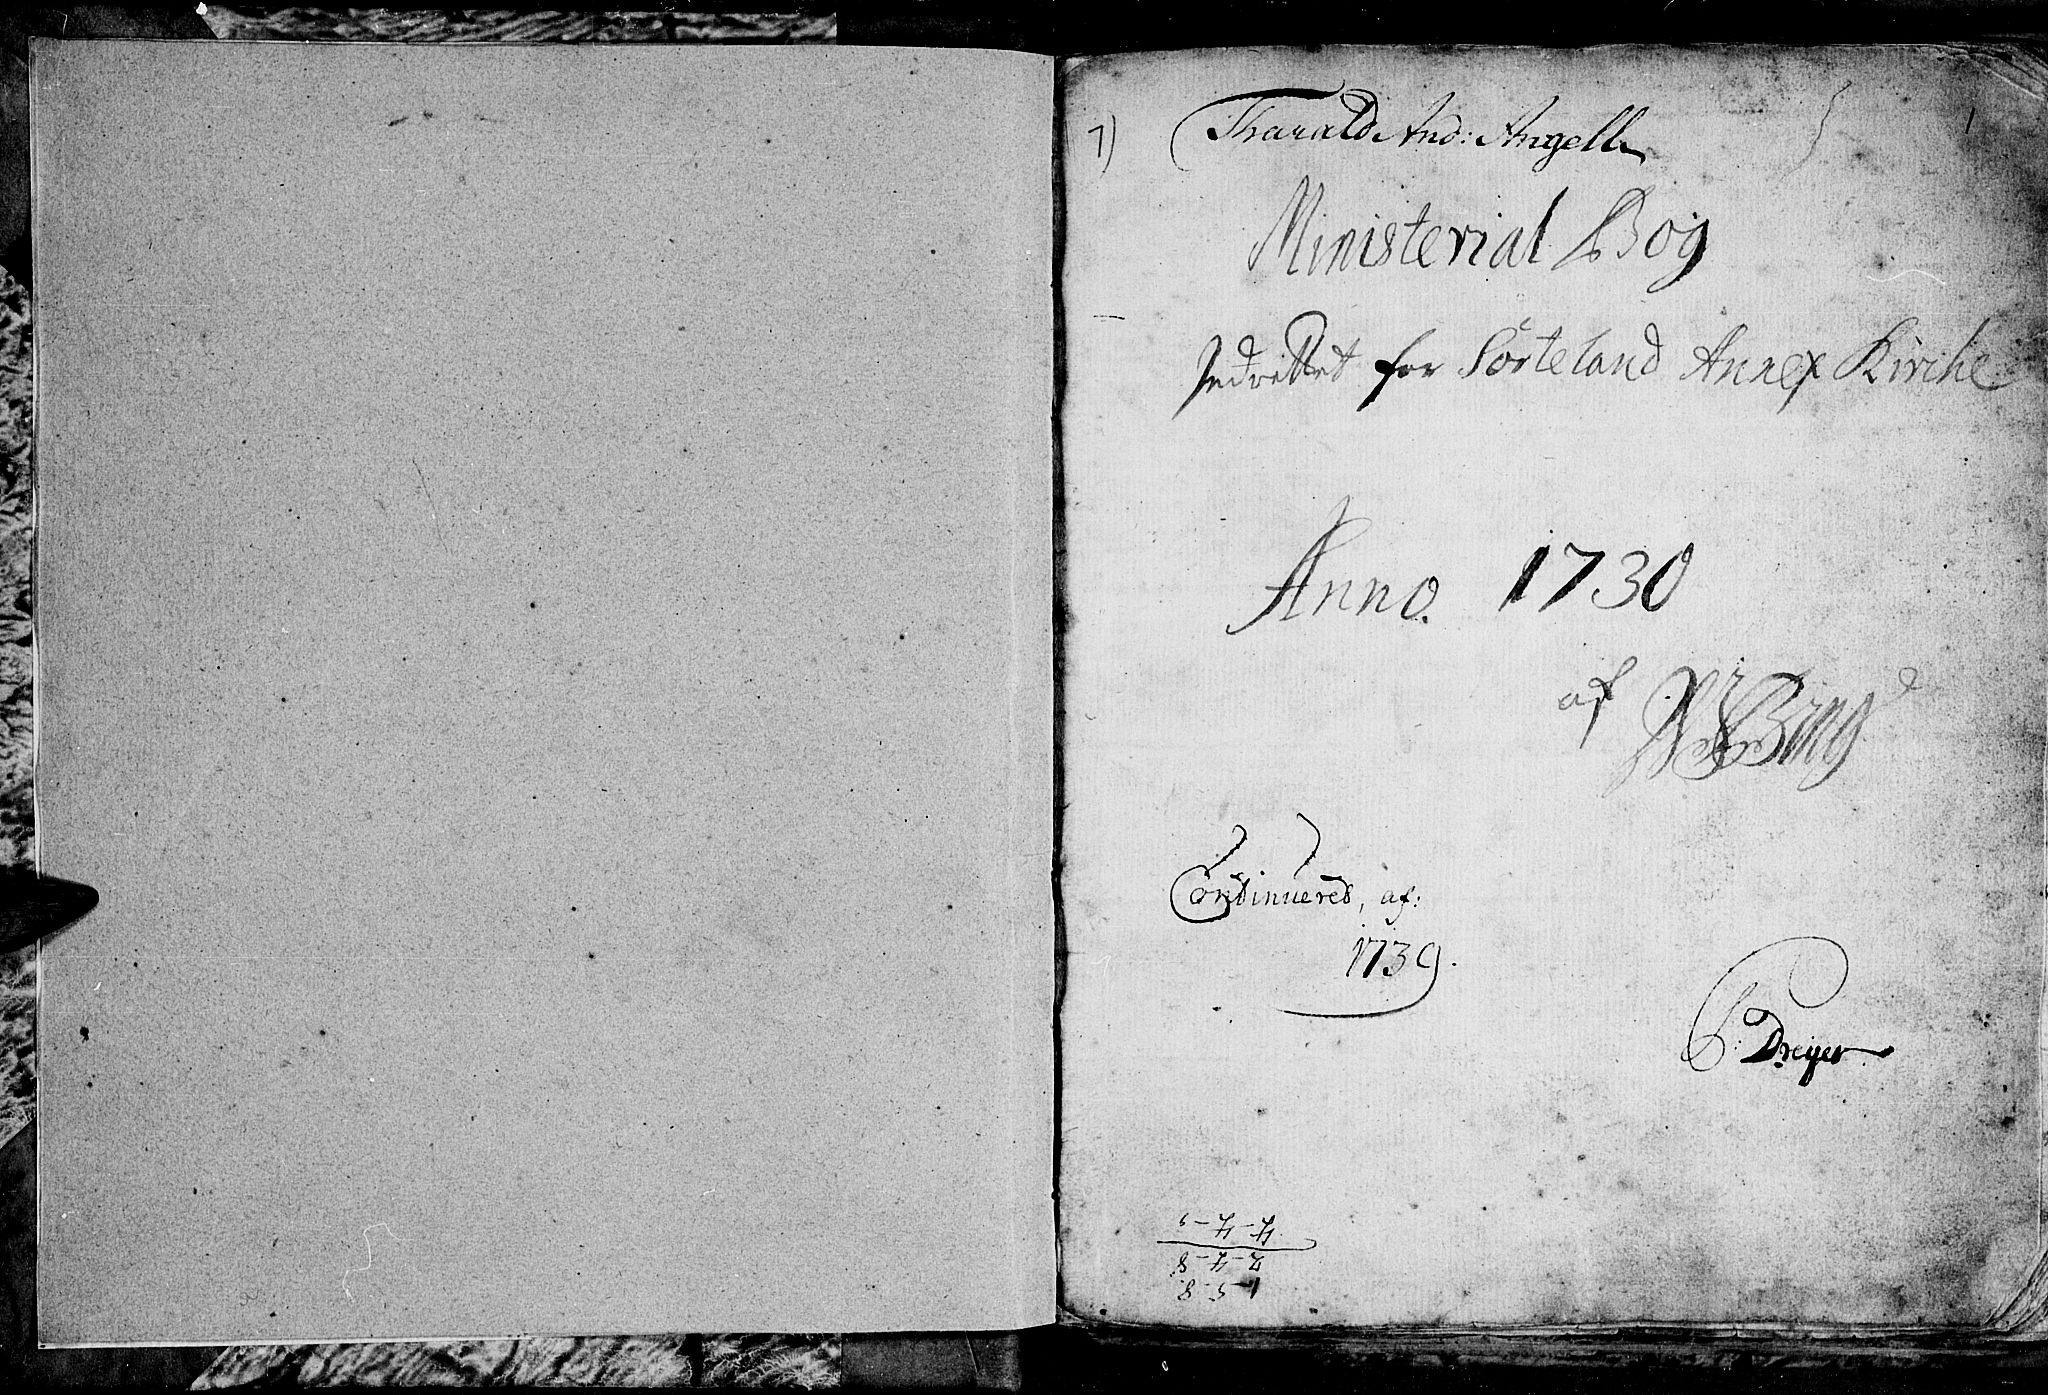 1) Tharald And: Angell 1
Ministerial Bog
Indrettet for Sörteland Annex Kirche
Anno. 1730
af Bing
Continueres, af:
1739.
Dreyer
1-5-8
2-4-8
4-4-5